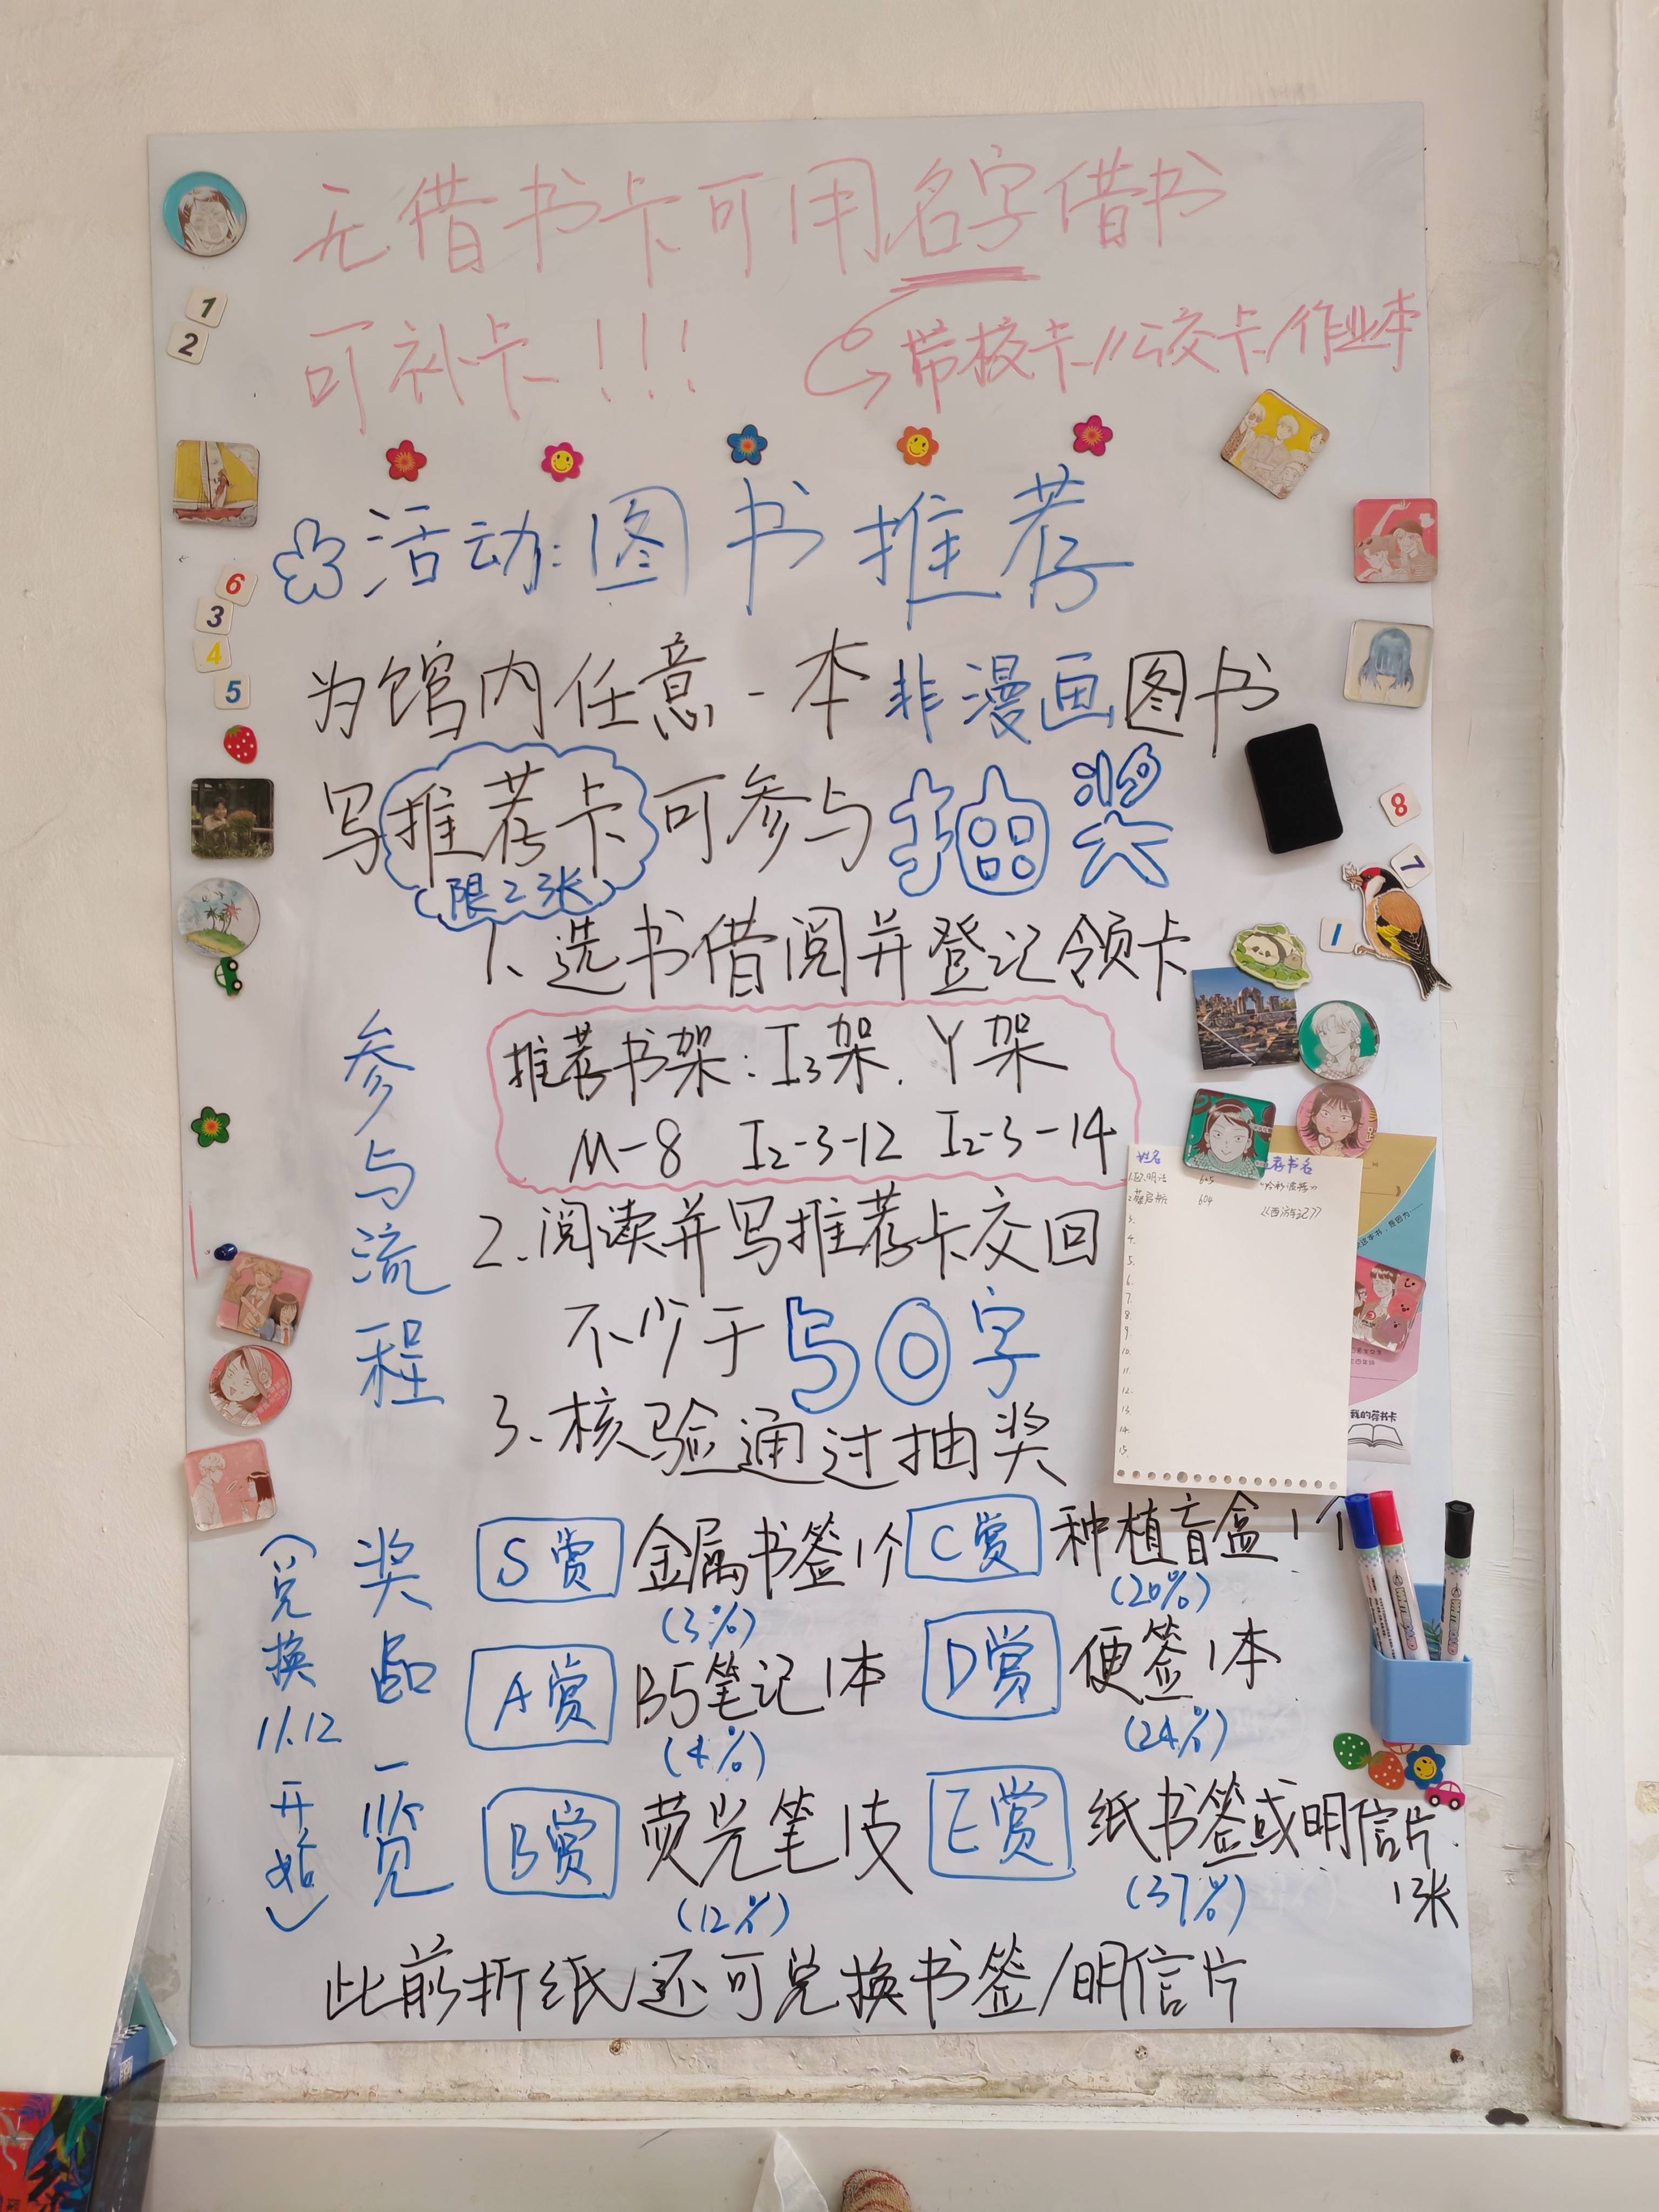 无借书卡可用名字借书
可补卡!!!
带校卡//公交卡/作业本
活动:图书推荐
为馆内任意一本非漫画图书
写推荐卡可参与抽奖
(限2张)
参与流程
1、选书借阅并登记领卡
推荐书架:I3架.Y架
M-8 I2-3-12 I2-3-14
2.阅读并写推荐卡交回
不少于50字
3、核验通过抽奖
姓名 荐书名
605
2. 604 《西游记》
3.
4.
5.
6.
7.
8.
9.
10.
11.
12.
13.
14.
15.
这本书,是因为……
我的荐书卡
奖品一览
(兑换11.12开始)
S赏 金属书签1个 (3%)
C赏 种植盲盒1个 (20%)
A赏 B5笔记1本 (4%)
D赏 便签1本 (24%)
B赏 荧光笔1支 (12%)
E赏 纸书签或明信片1张 (37%)
此前折纸还可兑换书签/明信片
1
2
6
3
4
5
8
7
1